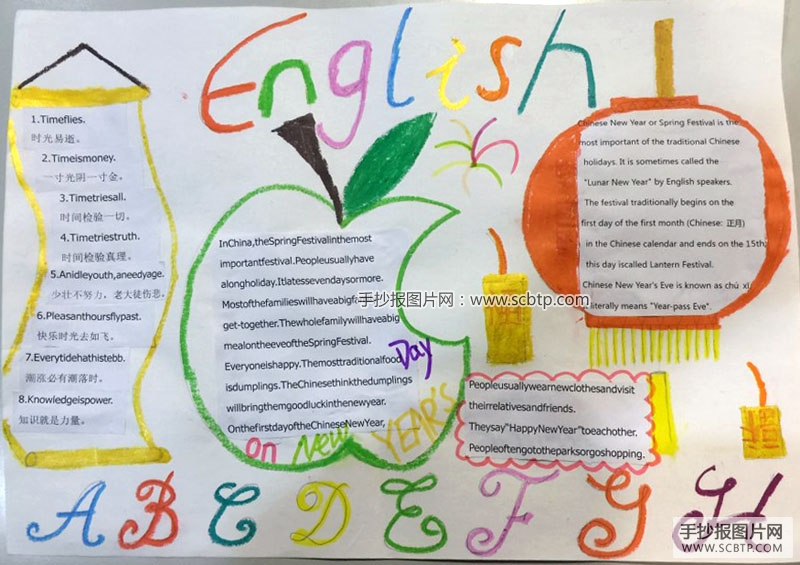 English
1.Timeflies.
时光易逝。
2.Timeismoney.
一寸光阴一寸金。
3.Timetriesall.
时间检验一切。
4.Timetriestruth.
时间检验真理。
5.Anidleyouth,aneedyage.
少壮不努力，老大徒伤悲。
6.Pleasanthoursflypast.
快乐时光去如飞。
7.Everytidehathistebb.
潮涨必有潮落时。
8.Knowledgeispower.
知识就是力量。
InChina,theSpringFestivalinthemost
importantfestival.Peopleusuallyhave
alongholiday.Itlatessevendaysormore.
Mostofthefamilieswillhaveabigf
get-together.Thewholefamilywillhaveabig
mealontheeveoftheSpringFestival.
Everyoneishappy.Themosttraditionalfood
isdumplings.TheChinesethinkthedumplings
willbringthemgoodluckinthenewyear.
OnthefirstdayoftheChineseNewYear,
on New YEAR'S Day
Chinese New Year or Spring Festival is the
most important of the traditional Chinese
holidays. It is sometimes called the
"Lunar New Year" by English speakers.
The festival traditionally begins on the
first day of the first month (Chinese: 正月)
in the Chinese calendar and ends on the 15th;
this day iscalled Lantern Festival.
Chinese New Year's Eve is known as chú xī
literally means "Year-pass Eve".
Peopleusuallywearnewclothesandvisit
theirrelativesandfriends.
Theysay"HappyNewYear"toeachother.
Peopleoftengototheparksorgoshopping.
A B C D E F G H
手抄报图片网：www.scbtp.com
手抄报图片网
WWW.SCBTP.COM